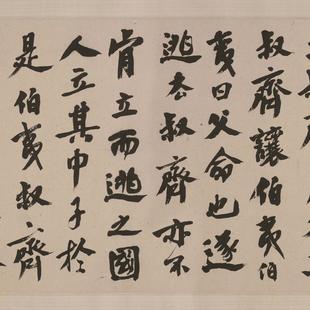 叔齊讓伯夷伯
夷曰父命也遂
逃去叔齊亦不
肯立而逃之國
人立其中子於
是伯夷叔齊